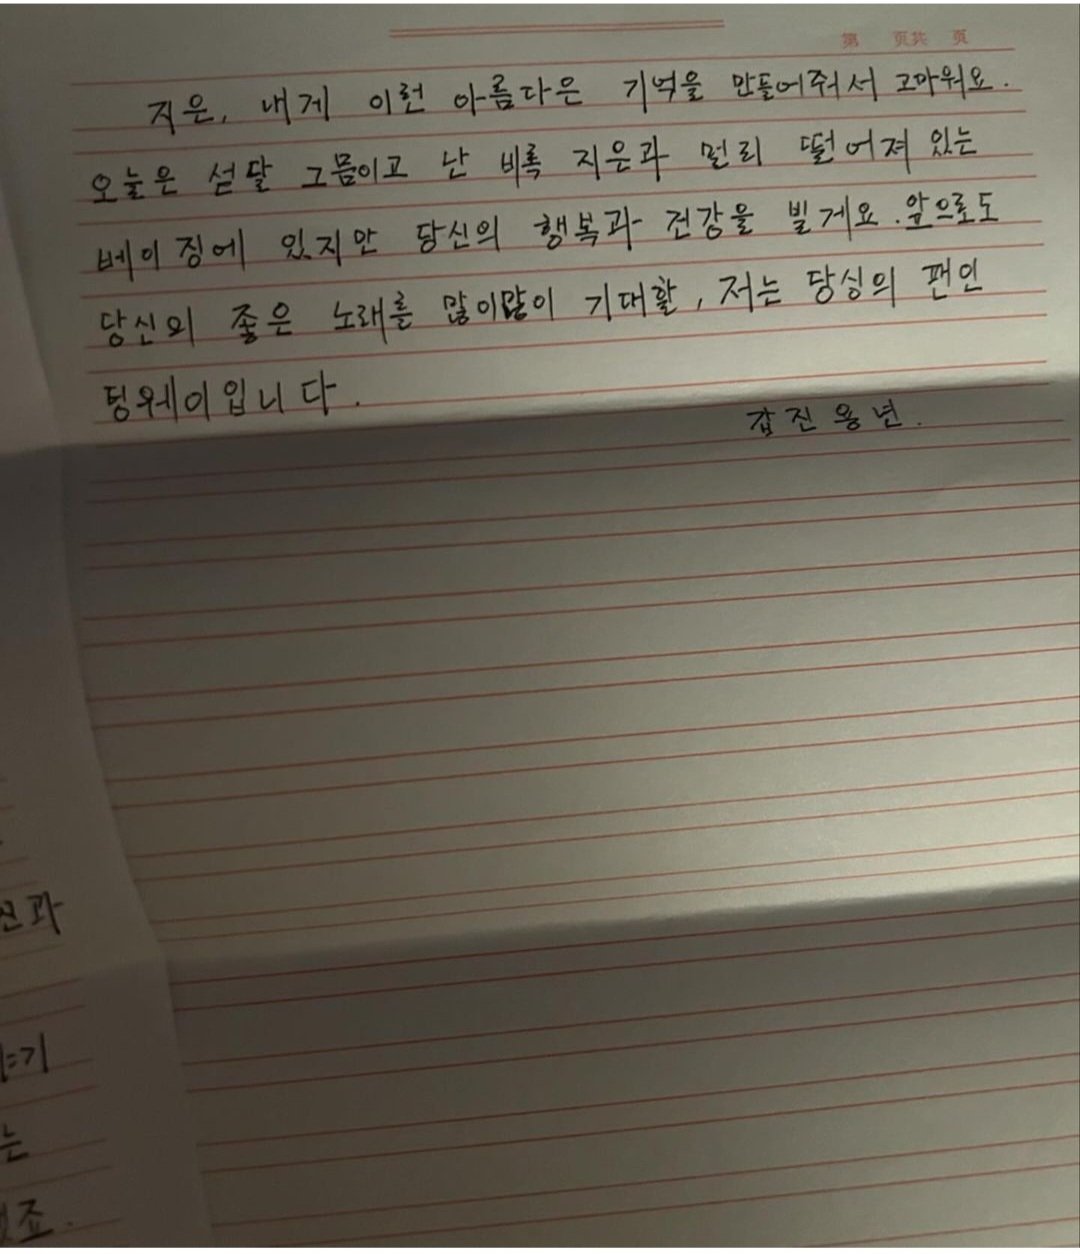 第 页共 页
지은, 내게 이런 아름다은 기억을 만들어줘서 고마워요.
오늘은 섣달 그믐이고 난 비록 지은과 멀리 떨어져 있는
베이징에 있지만 당신의 행복과 건강을 빌게요. 앞으로도
당신의 좋은 노래를 많이많이 기대할, 저는 당싱의 팬인
딩웨이입니다.
갑진용년.
과
기
는
죠.